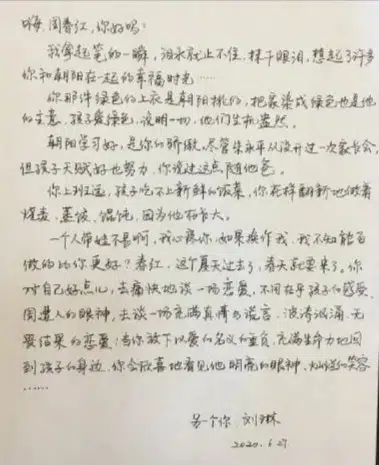 嗨,周春红,你好吗?
我拿起笔的一瞬,泪水就止不住,抹干眼泪,想起了许多
你和朝阳在一起的幸福时光……
你那件绿色的上衣是朝阳挑的,把家染成绿色也是他
的主意,孩子爱绿色,说明一切,他们生机盎然。
朝阳学习好,是你的骄傲。尽管朱永平从没开过一次家长会,
但孩子天赋好也努力,你说过这点随他爸。
你上班远,孩子吃不上新鲜的饭菜,你花样翻新地做着
烧麦、蒸饺、馄饨,因为他在长大。
一个人带娃不易啊,我心疼你,如果换作我,我不知能否
做的比你更好?春红,这个夏天过去了,春天就要来了。你
对自己好点儿,去痛快地谈一场恋爱,不用在乎孩子的感受、
周遭人的眼神,去谈一场充满真情与谎言、波涛汹涌、无
畏结果的恋爱;当你放下以爱的名义的重负,充满生命力地回
到孩子的身边,你会欣喜地看见他明亮的眼神、灿烂的笑容
……
另一个你 刘琳
2020.6.27